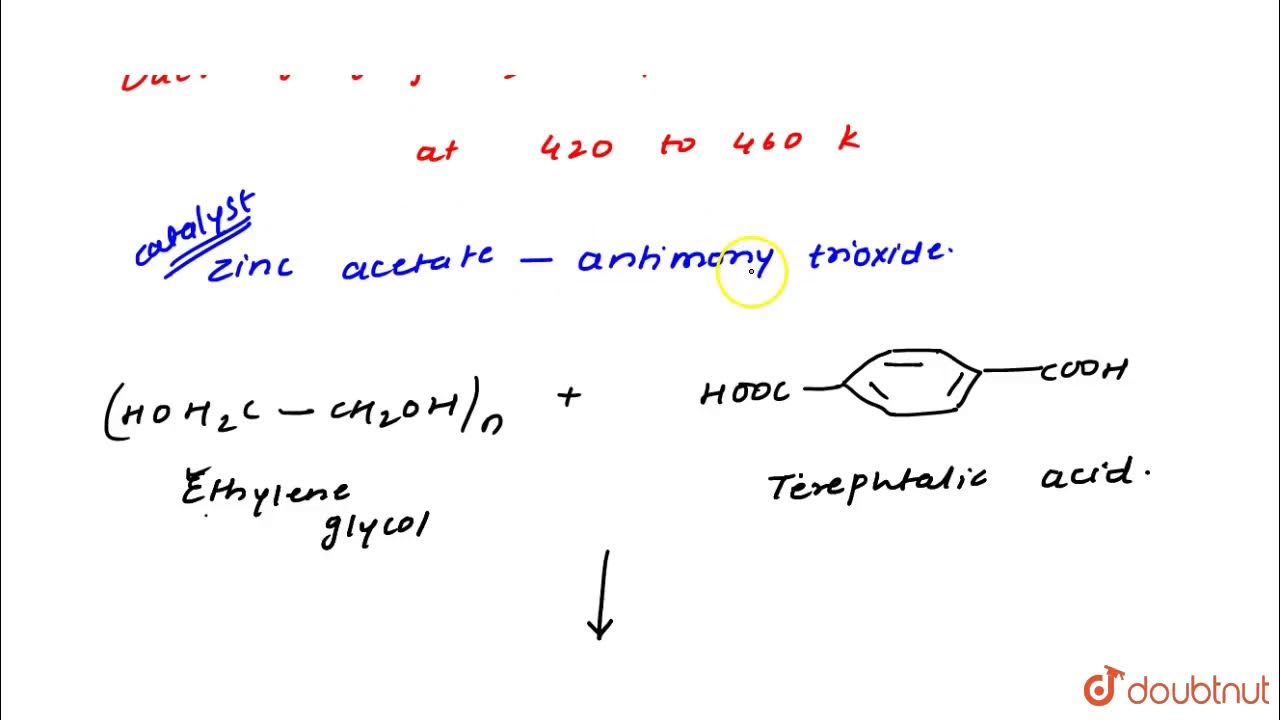 at 420 to 460 k
catalyst
zinc acetate — antimony trioxide.
(HOH₂C — CH₂OH)ₙ + HOOC — COOH
Ethylene
glycol
Terephtalic acid.
doubtnut